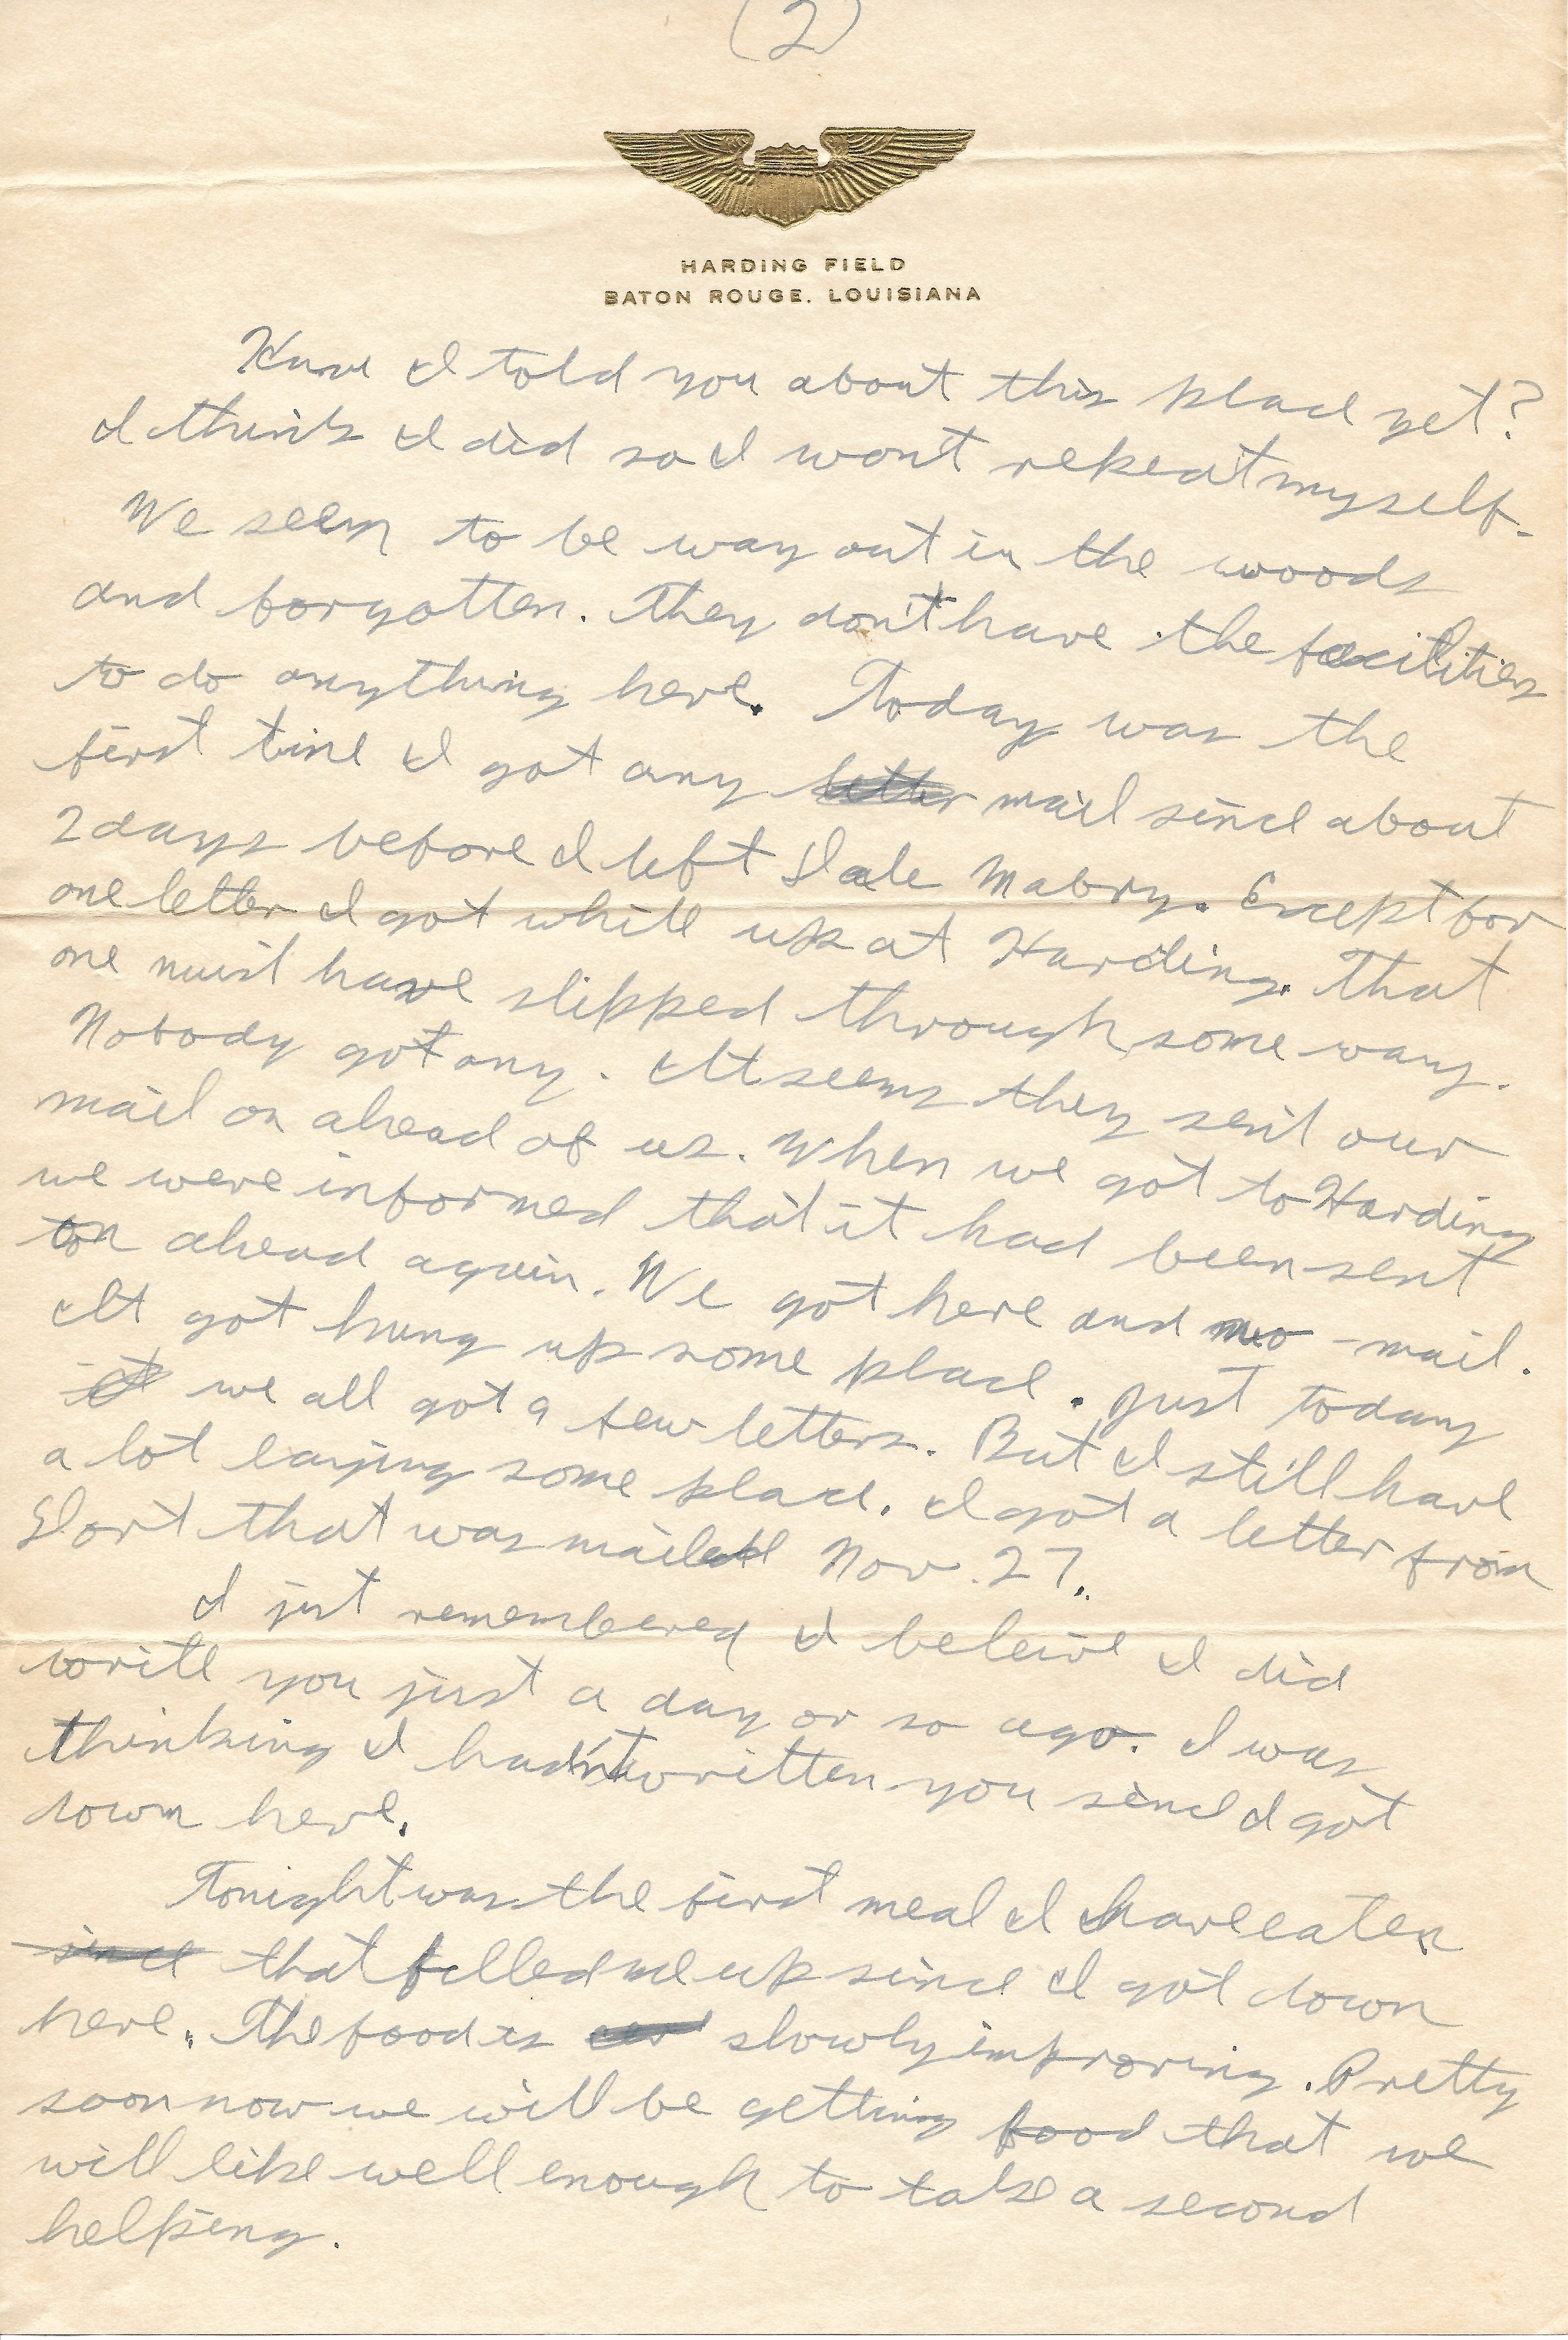 (2)
HARDING FIELD
BATON ROUGE, LOUISIANA
Have I told you about this place yet?
I think I did so I won't repeat myself.
We seem to be way out in the woods
and forgotten. They don't have the facilities
to do anything here. Today was the
first time I got any letter mail since about
2 days before I left Dale Mabry. Except for
one letter I got while up at Harding. That
one must have slipped through some way.
Nobody got any. It seems they sent our
mail on ahead of us. When we got to Harding
we were informed that it had been sent
on ahead again. We got here and no mail.
It got hung up some place. Just today
it we all got a few letters. But I still have
a lot laying some place. I got a letter from
Dort that was mailed Nov. 27.
I just remembered I beleive I did
write you just a day or so ago. I was
thinking I hadn't written you since I got
down here.
Tonight was the first meal I have eaten
since that filled me up since I got down
here. The food is slowly improving. Pretty
soon now we will be getting food that we
will like well enough to take a second
helping.